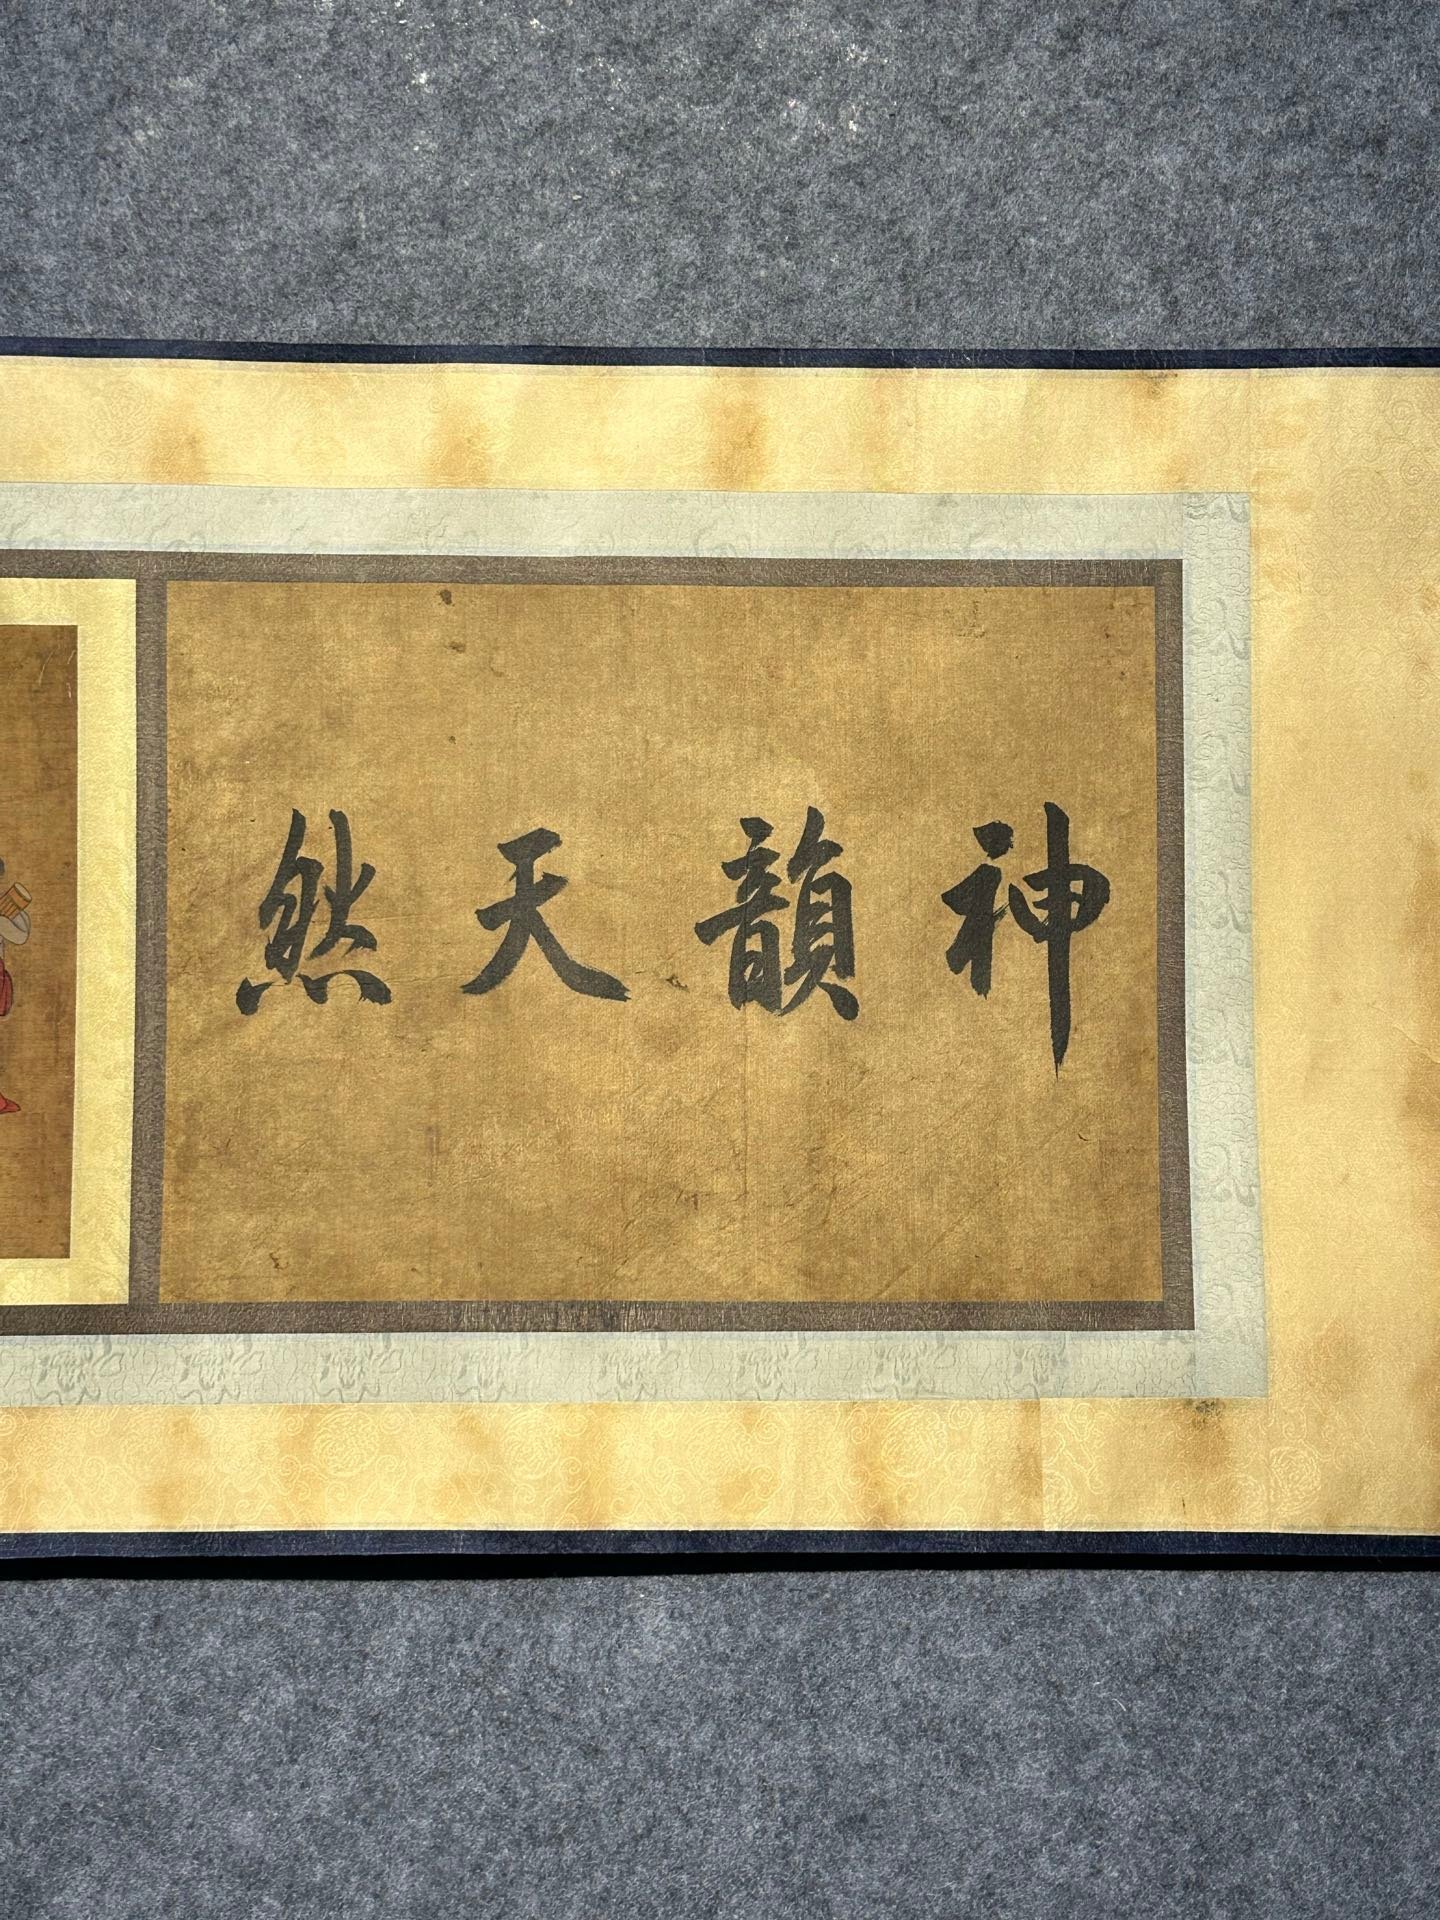 神韻天然